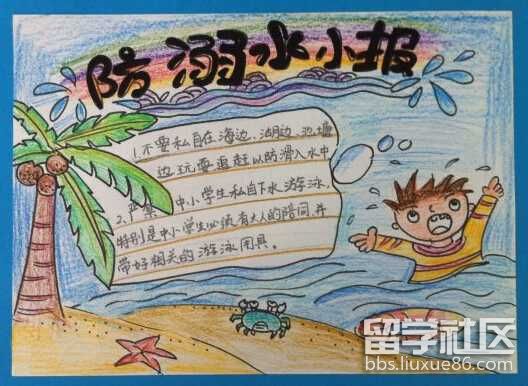 防溺水小报
1.不要私自在海边、湖边、池塘
边玩耍追赶以防滑入水中
2.严禁中小学生私自下水游泳,
特别是中小学生必须有大人的陪同并
带好相关的游泳用具。
留学社区
bbs.liuxue86.com